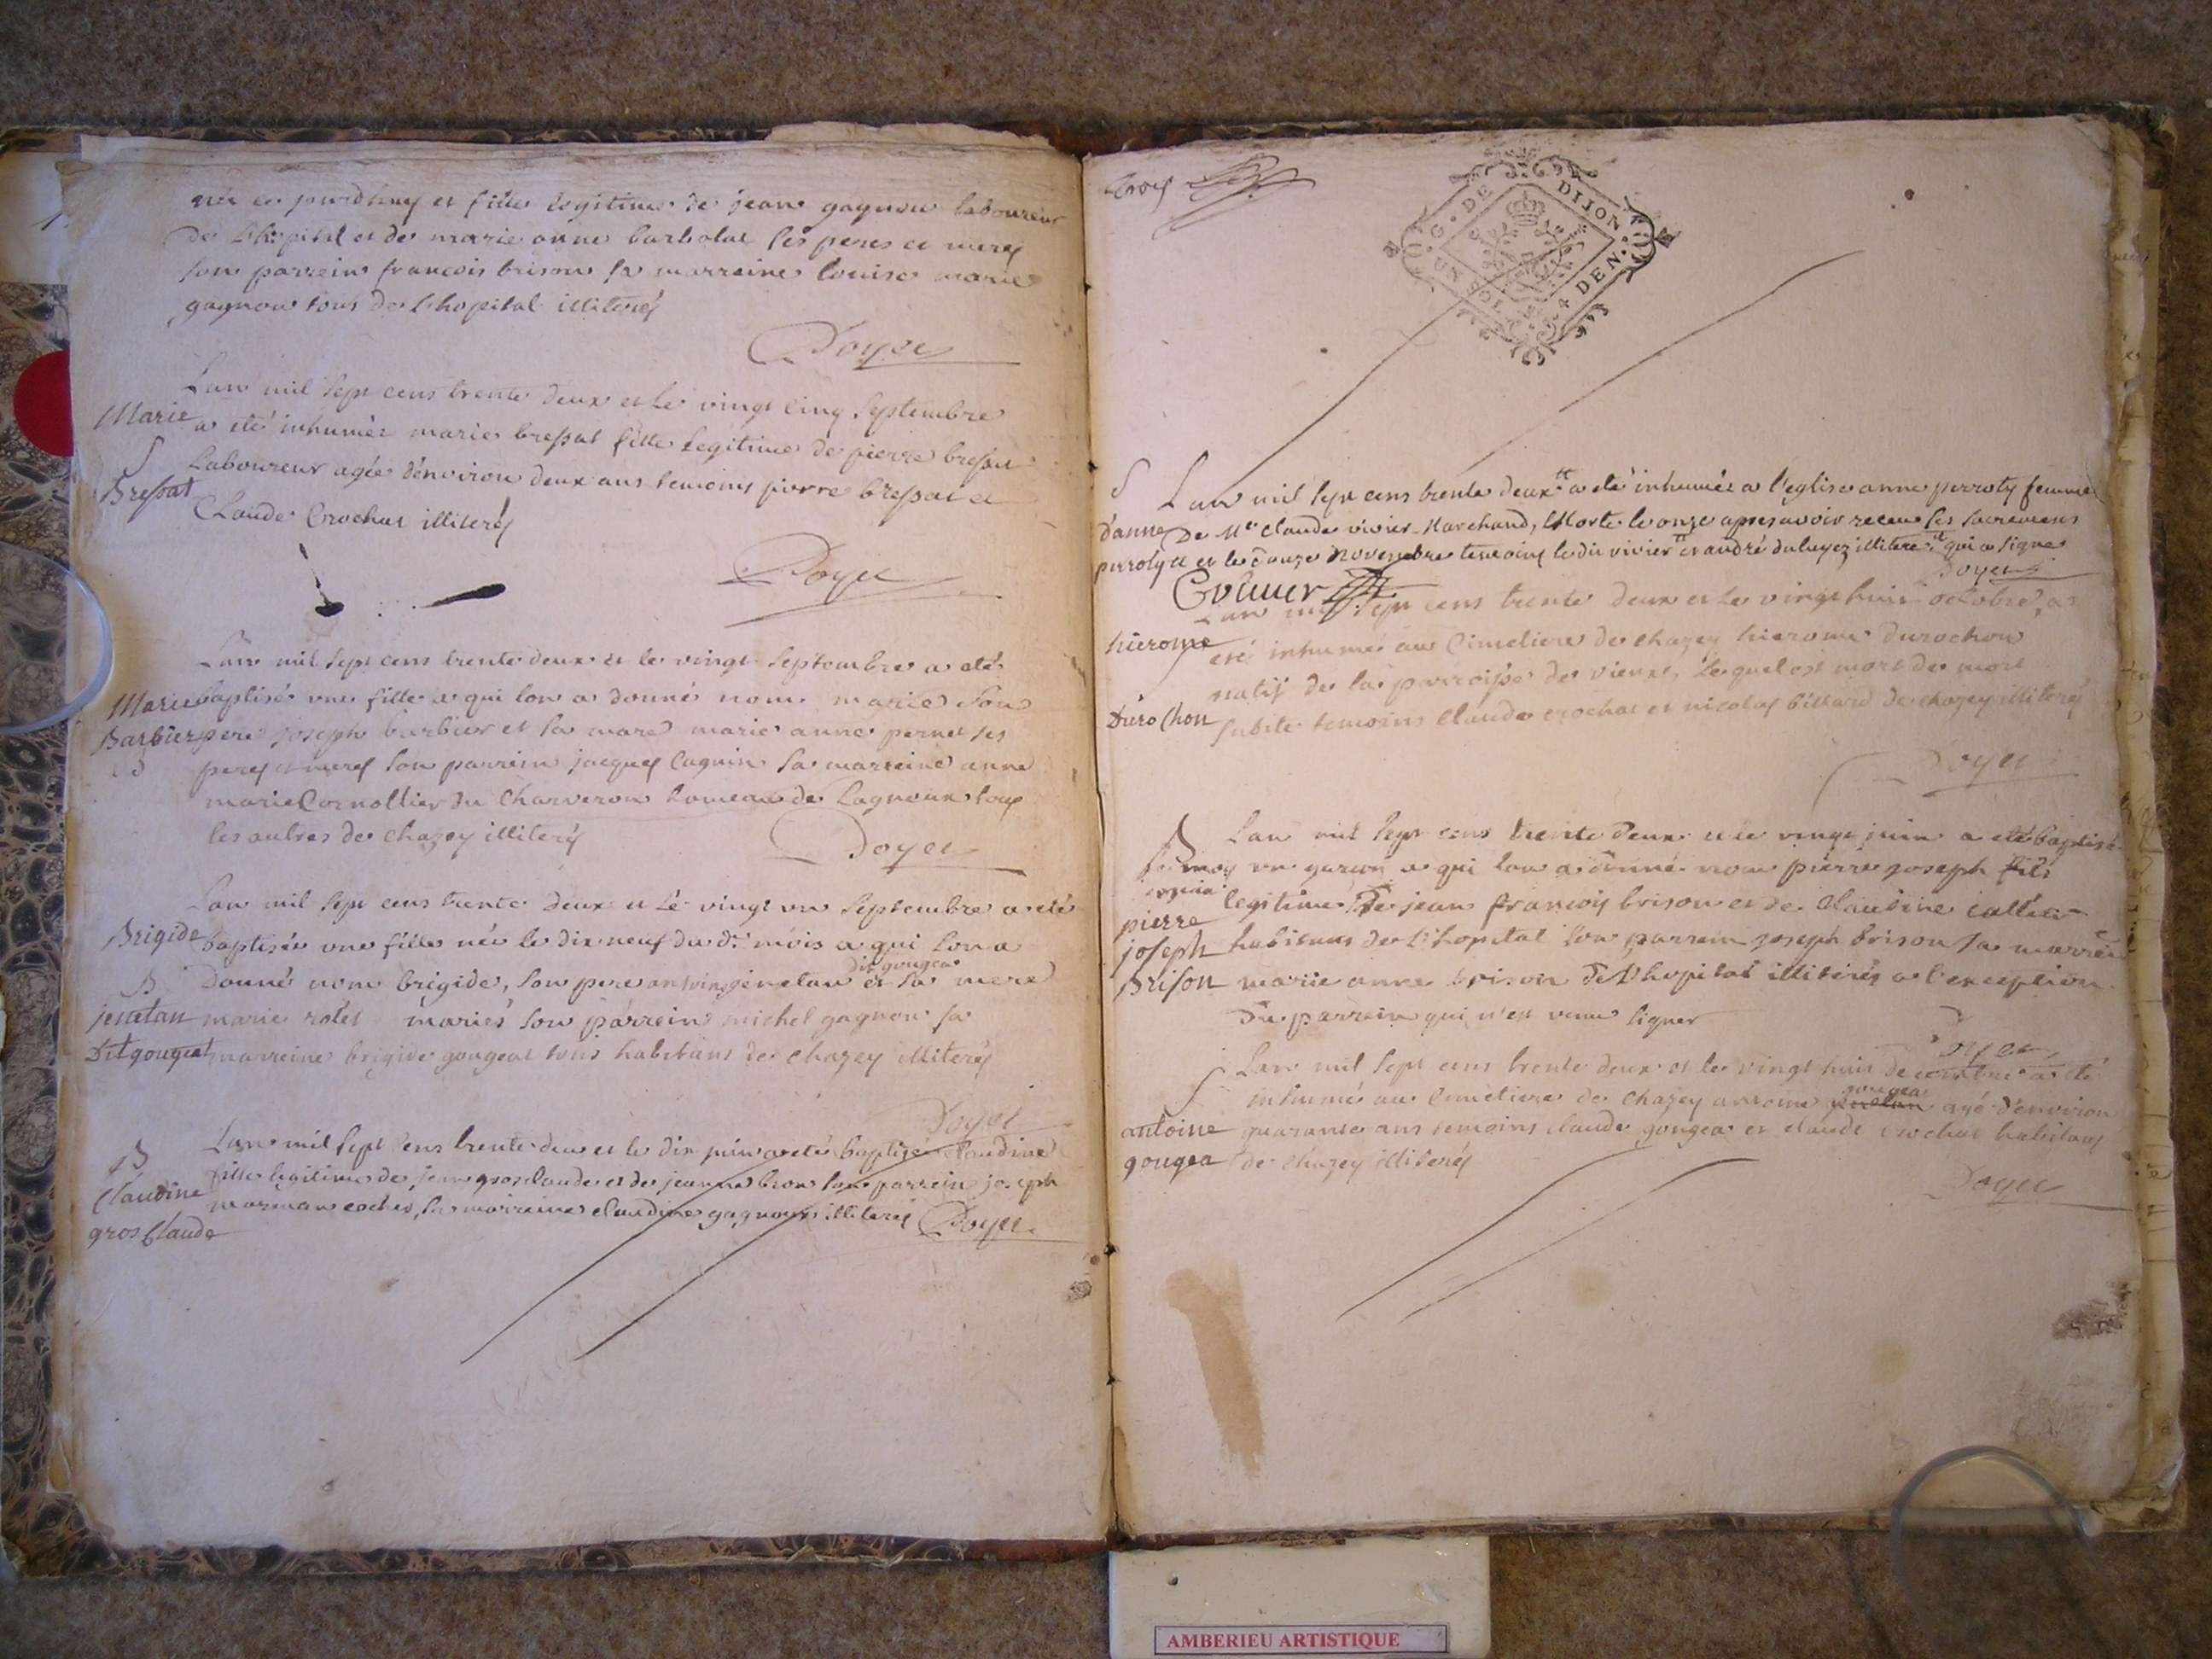 née ce jourdhuy et fille legitime de jean gagnou laboureur
de Lhopital et de marie anne barbolat ses peres et meres
son parrein francois brison sa marreine louise marie
gagnou tous de Lhopital illiterés
Doyer
Marie
S
Bressat
Lan mil sept cens trente deux et le vingt cinq septembre
a eté inhumée marie bressat fille legitime de pierre bressat
Laboureur agée d'environ deux ans temoins pierre bressat et
Claude Crochat illiterés
Doyer
Marie
Barbier
B
Lan mil sept cens trente deux et le vingt septembre a eté
baptisée une fille a qui lon a donné nom marie son
pere joseph barbier et sa mere marie anne pernet ses
peres et meres son parrein jacques cagnin sa marreine anne
marie Cornollier du Charveron hameau de Lagnieux tous
les autres de chazey illiterés
Doyer
Brigide
B
jenetan
Dit gougeat
Lan mil sept cens trente deux et le vingt un septembre a eté
baptisée une fille née le dix neuf du dt mois a qui lon a
dit gougea
donné nom brigide, son pere antoine jenetan et sa mere
marie rolet mariés son parrein michel gagnou sa
marreine brigide gougeat tous habitans de chazey illiterés
Doyer
B
Claudine
gros Claude
Lan mil sept cens trente deux et le dix juin a eté baptizée claudine
fille legitime de jean grosclaude et de jeanne bron son parrein joseph
marinan cocher, sa marreine claudine gagnoux illiterés Doyer
G. DE DIJON
4 DEN.
S
d'anne
perroty
Lan mil sept cens trente deux a eté inhumée a l'eglise anne perroty femme
De Mr Claude vivier Marchand, Morte le onze apres avoir receu ses sacremens
et le douze novembre temoins le dit vivier et andré duluyez illiteré qui a signé
Doyer
C vivier
hierome
S
Durochon
Lan mil sept cens trente deux et le vingt huit octobre, a
eté inhumé au Cimetiere de chazey hierome durochon
natif de la parroisse de vieux, lequel est mort de mort
subite temoins Claude crochat et nicolas billard de chazey illiterés
Doyer
B
pierre
joseph
Brison
Lan mil sept cens trente deux et le vingt juin a eté baptisé
un garcon a qui lon a donné nom pierre joseph fils
legitime de jean francois brison et de Claudine
habitans de L'hopital son parrein joseph brison sa marreine
marie anne brison de Lhopital illiterés a l'exception
du parrein qui n'est venu signer
Doyer
S
antoine
gougea
Lan mil sept cens trente deux et le vingt huit decembre a eté
gougea
inhumé au Cimetiere de chazey antoine jenetan agé d'environ
quarante ans temoins claude gougea et claude Crochat habitans
de chazey illiterés
Doyer
AMBERIEU ARTISTIQUE